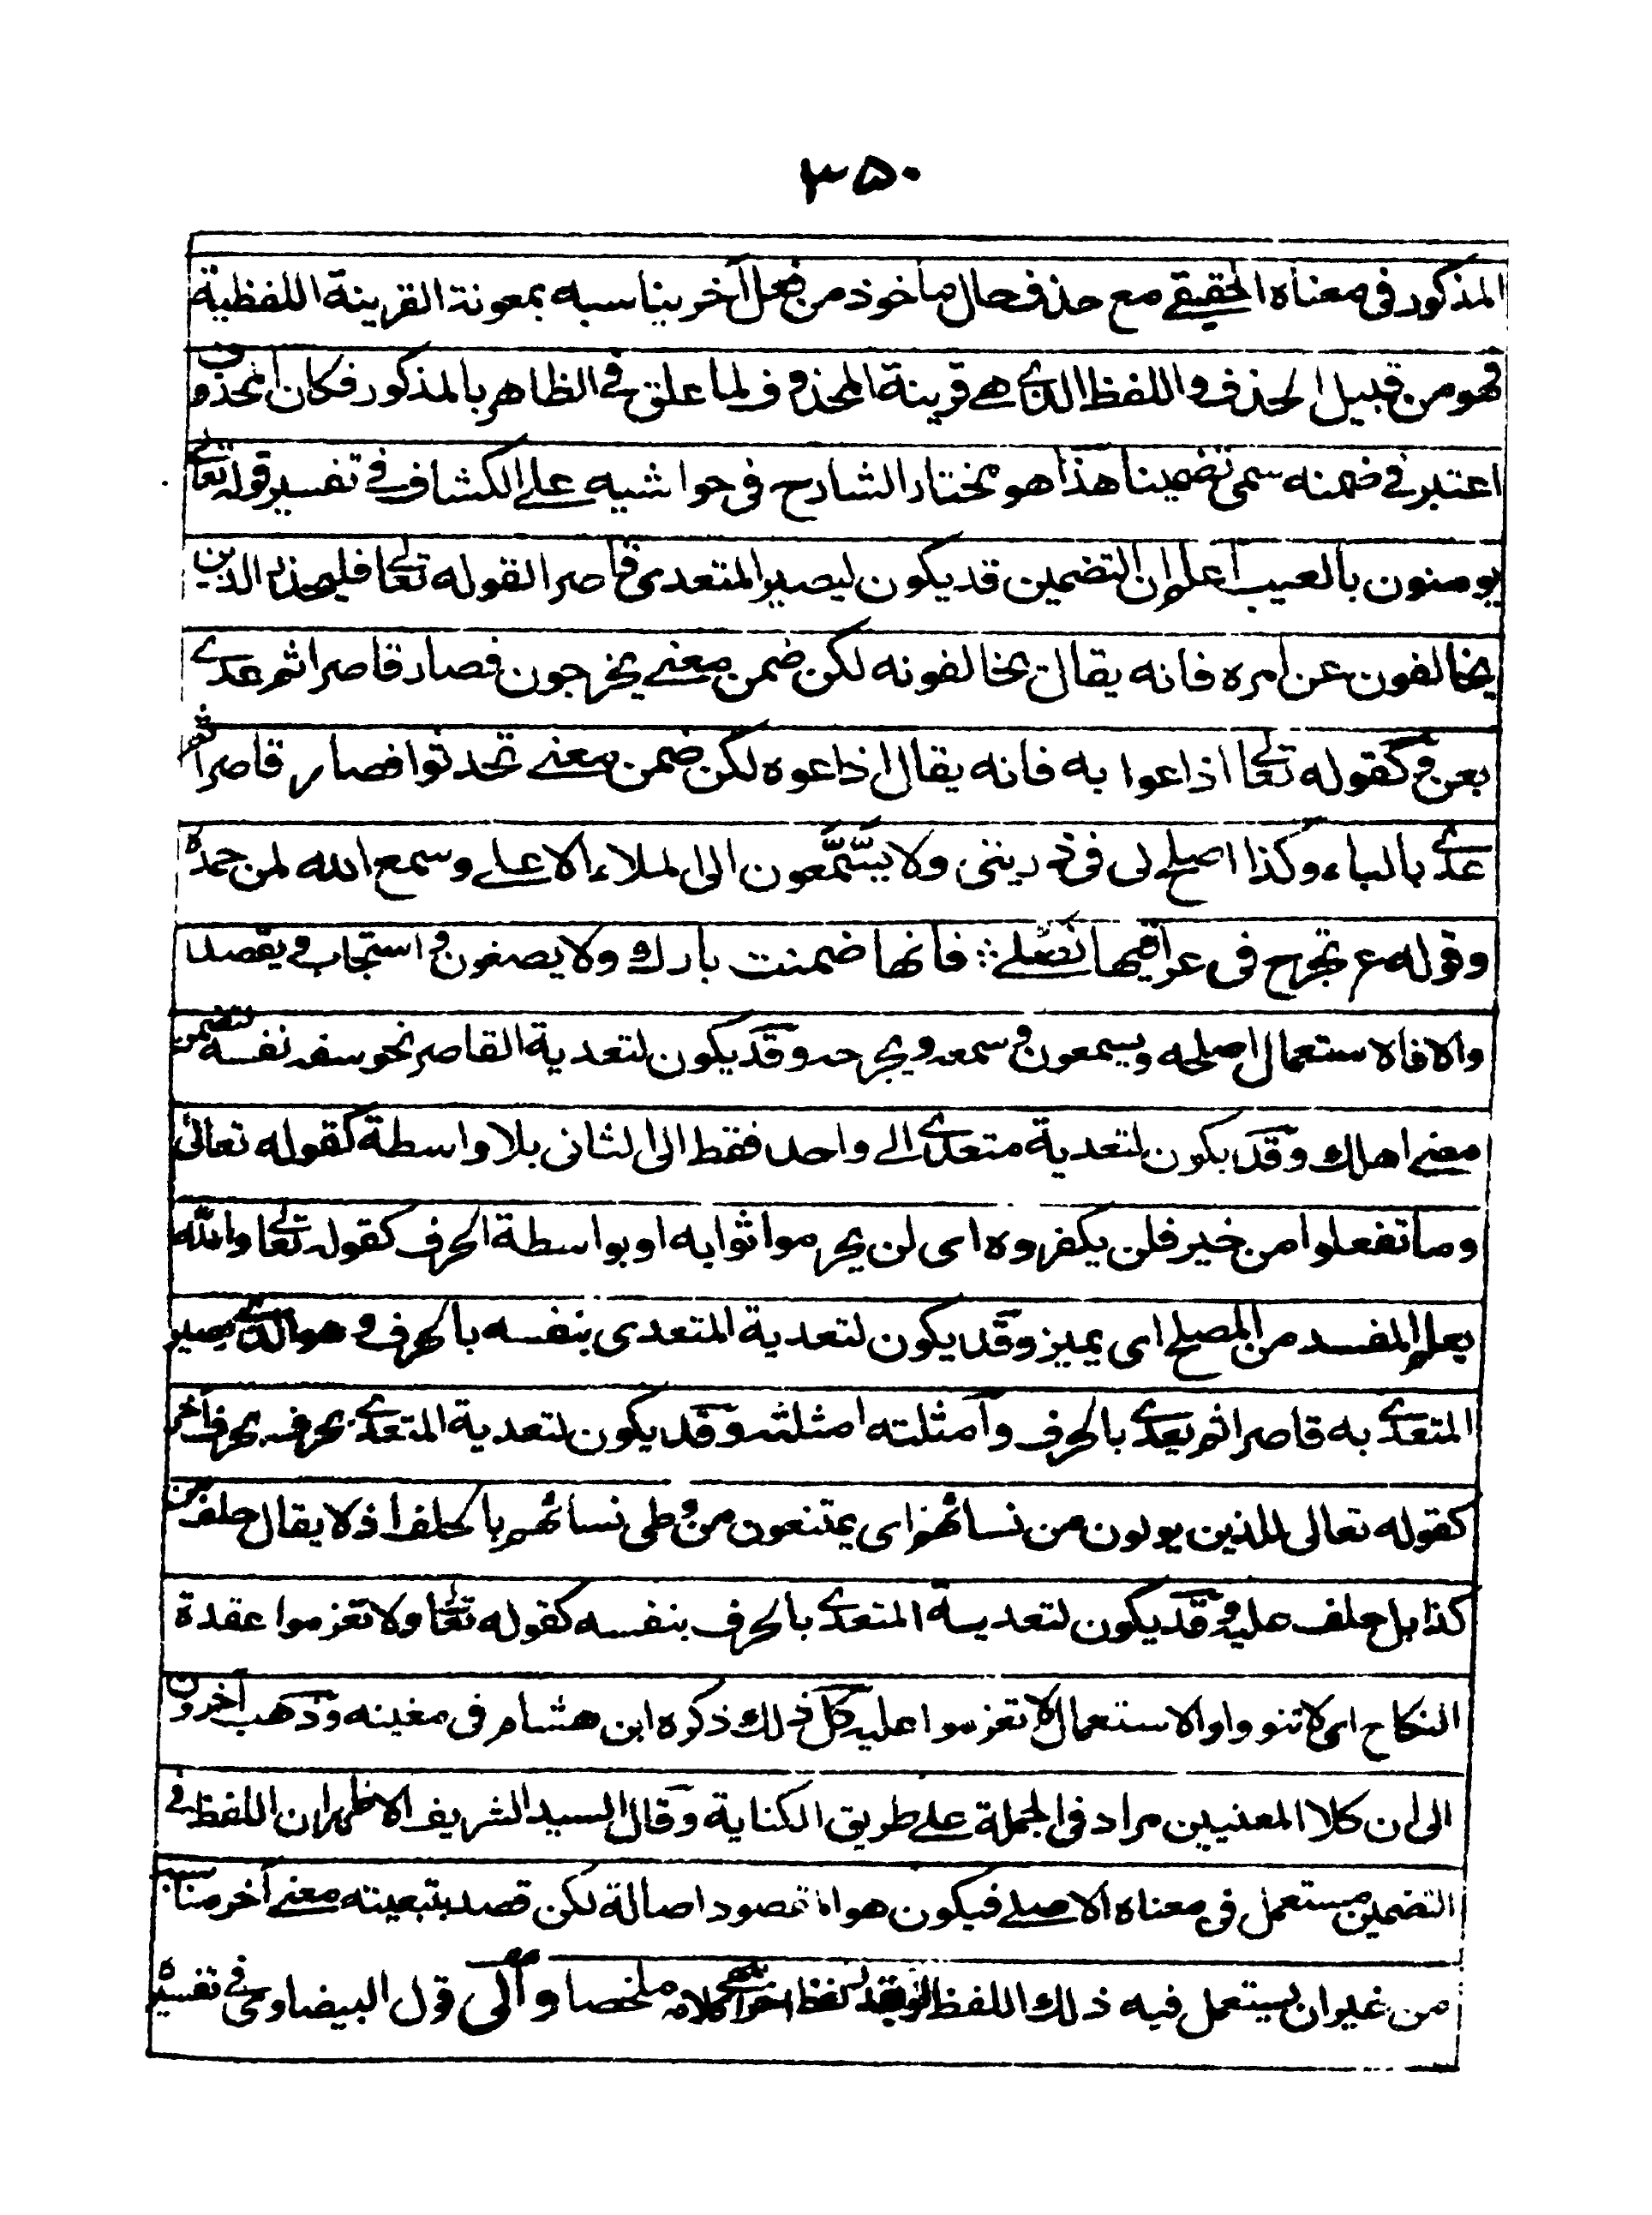 ۳۵۰
المذكور فى معناه الحقيقے مع حذف حال مأخوذ من فعل آخر يناسبه بمعونة القرينة اللفظية
فهو من قبيل الحذف واللفظ الذے هے قرينة المحذوف لما علق فے الظاهر بالمذكور فكان المحذوف
اعتبر فے ضمنه سمى تضمينا هذا هو مختار الشارح فى حواشيه علے الكشاف فے تفسير قوله تعالے
يومنون بالغيب اعلم ان التضمين قد يكون ليصير المتعدى قاصرا لقوله تعالے فليحذر الذين
يخالفون عن امره فانه يقال يخالفونه لكن ضمن معنے يخرجون فصار قاصرا ثم عدے
بعن وكقوله تعالے اذاعوا به فانه يقال اذاعوه لكن ضمن معنے تحدثوا فصار قاصرا ثم
عدے بالباء وكذا اصلح لى فى ذريتى ولا يسّمّعون الى الملاء الاعلے وسمع الله لمن حمده
وقوله ع تجرح فى عراقيبها نصلے فانها ضمنت بارك ولا يصغون و استجاب و يفسد
والا فالاستعمال اصلحه ويسمعون و سمعه ويجرحه وقد يكون لتعدية القاصر نحو سفه نفسه لتضمن
معنے اهلك وقد يكون لتعدية متعدے الے واحد فقط الى الثانى بلا واسطة كقوله تعالى
وما تفعلوا من خير فلن يكفروه اى لن يحرموا ثوابه او بواسطة الحرف كقوله تعالے والله
يعلم المفسد من المصلح اى يميز وقد يكون لتعدية المتعدى بنفسه بالحرف و هو الذے يصير
المتعدے به قاصرا ثم يعدے بالحرف وامثلته امثلته وقد يكون لتعدية المتعدے بحرف بحرف آخر
كقوله تعالى للذين يولون من نسائهم اى يمتنعون من وطى نسائهم بالحلف اذ لا يقال حلف من
كذا بل حلف عليه وقد يكون لتعدية المتعدے بالحرف بنفسه كقوله تعالے ولا تعزموا عقدة
النكاح اى لا تنووا والاستعمال لا تعزموا عليه كل ذلك ذكره ابن هشام فى مغينه وذهب آخرون
الى ان كلا المعنيين مراد فى الجملة علے طريق الكناية وقال السيد الشريف الاظهر ان اللفظ فے
التضمين مستعمل فى معناه الاصلے فيكون هو المقصود اصالة لكن قصد بتبعيته معنے آخر مناسب
من غير ان يستعمل فيه ذلك اللفظ او يقدر لفظ اخر انتهے كلامه ملخصا والى قول البيضاوى فے تفسيره